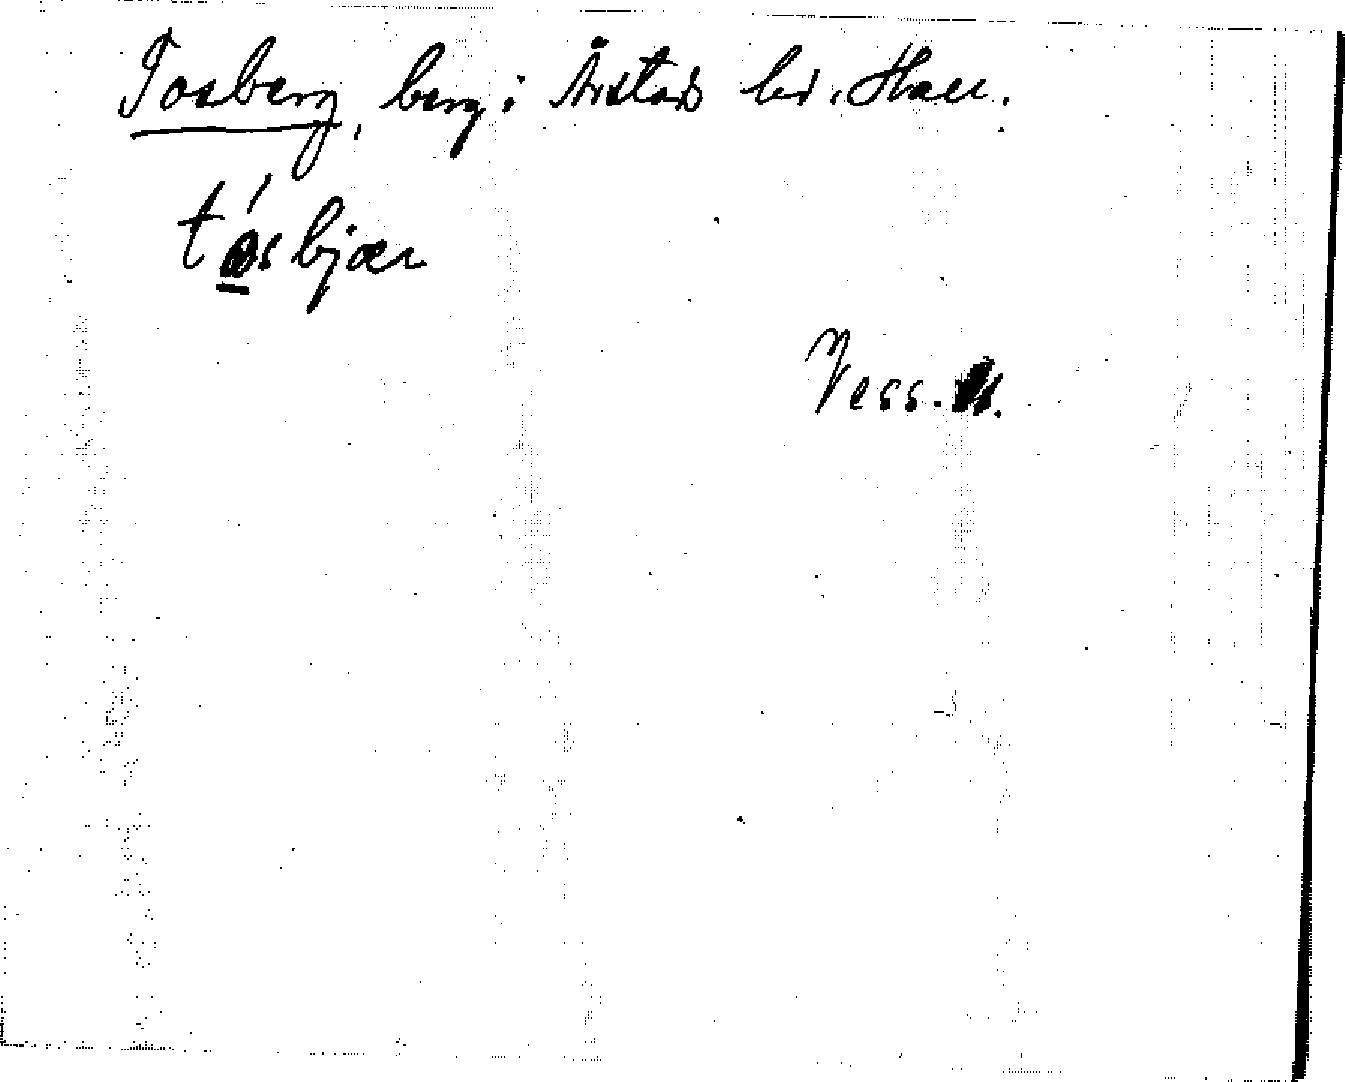 Tosberg, berg i Årstads hd. Hall.
tosbjær
Vess.